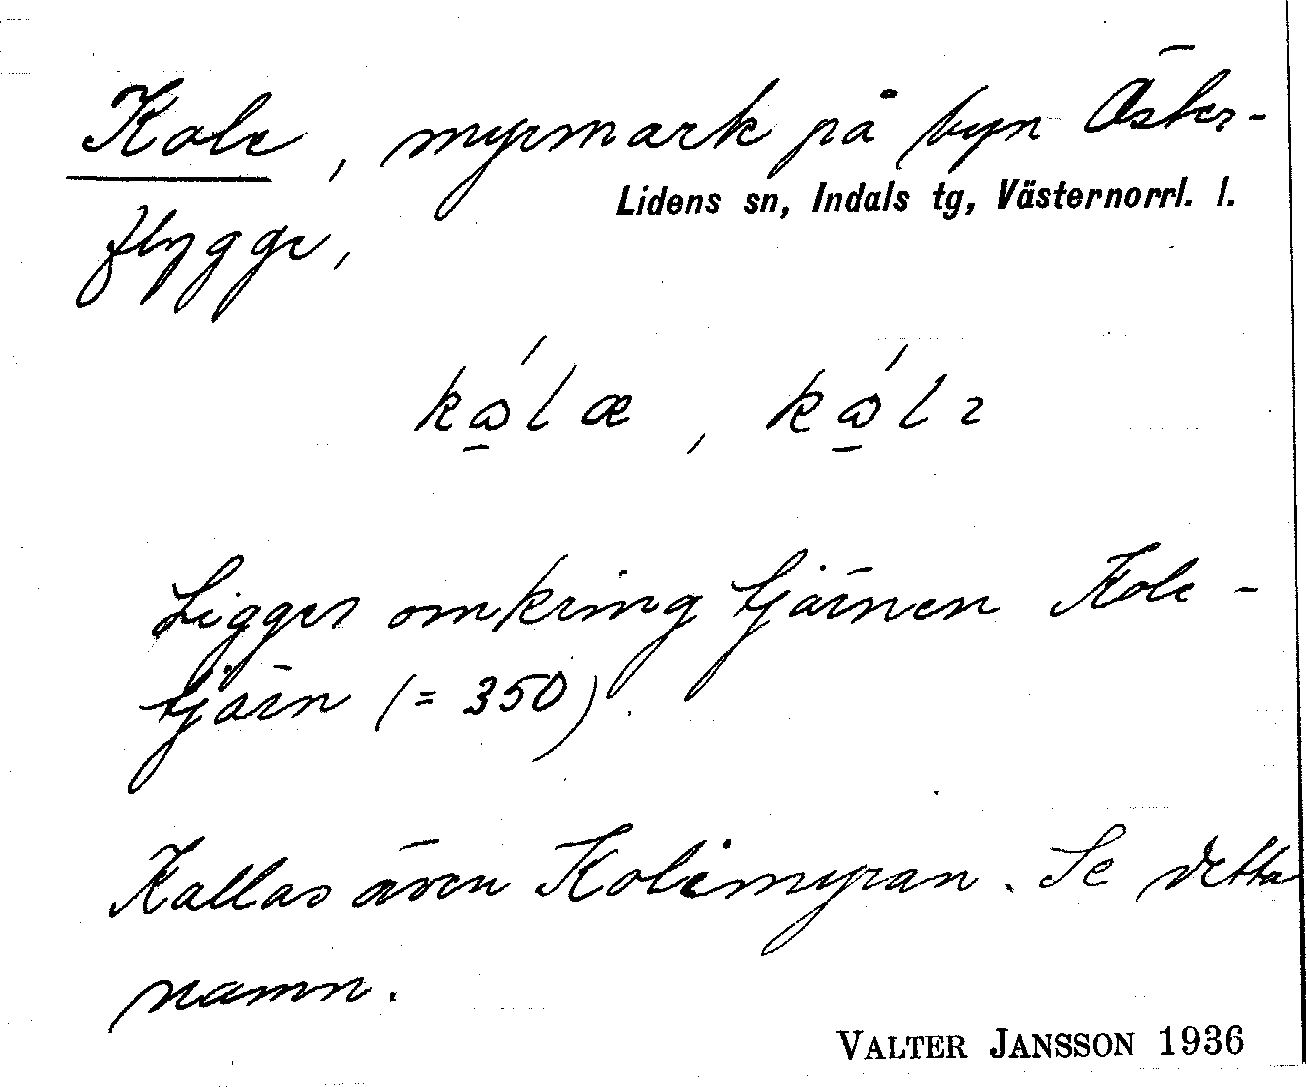 Kole, myrmark på byn Öster-
Lidens sn, Indals tg, Västernorrl. l.
flygge,
Ligger omkring tjärnen Kole-
tjärn (= 350).
Kallas även Kolemyran. Se detta
namn.
VALTER JANSSON 1936